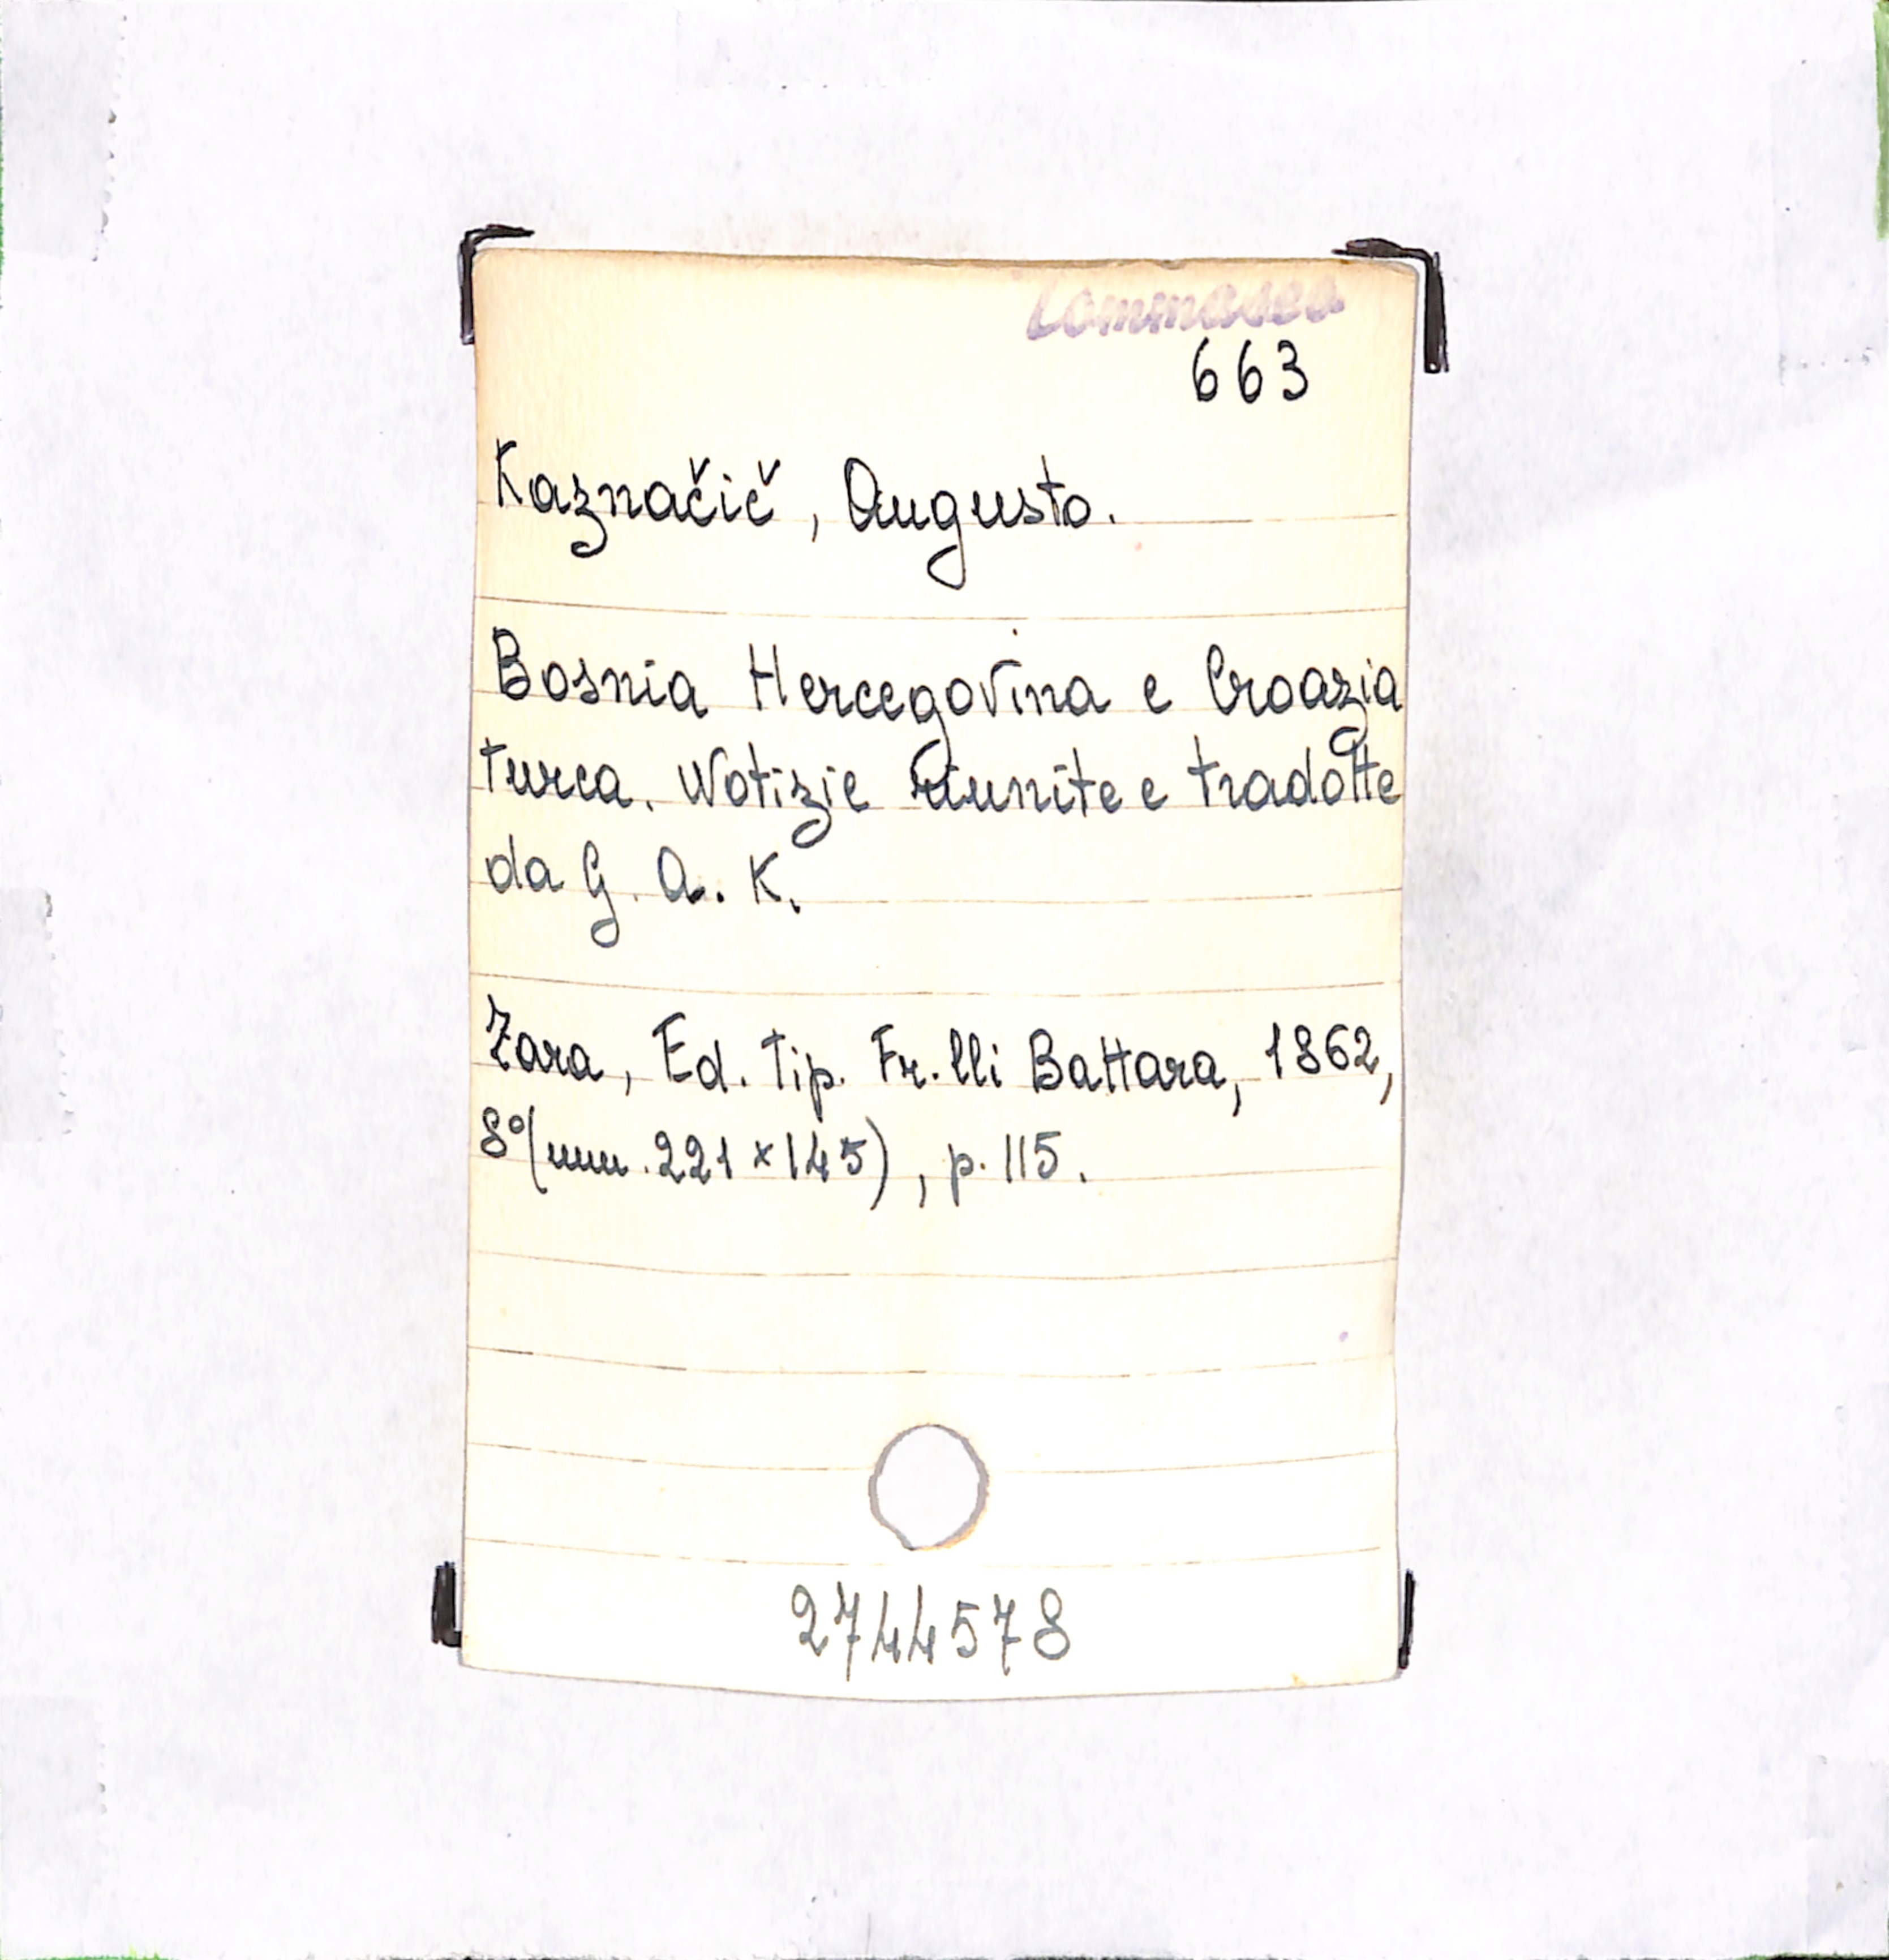 Tommaseo
663
Kaznačič, Augusto.
Bosnia Hercegovina e Croazia
turca. Notizie riunite e tradotte
da G. A. K.
Zara, Ed. Tip. Fr.lli Battara, 1862,
8°(mm. 221 x 145), p. 115.
2744578